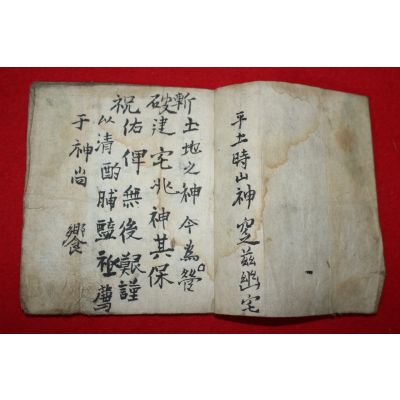 平土時山神 窆茲幽宅
斬土地之神今為營
破建宅兆神其保
祝佑俾無後艱謹
以清酌脯醢祗薦
于神尚
饗